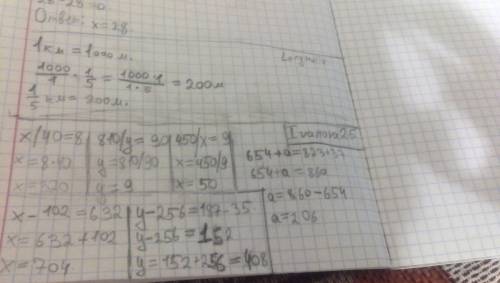 Ответ: x=28.
1 км = 1000 м.
1000/1 · 1/5 = 1000·1/1·5 = 200м
1/5 км = 200м.
Ivanova25
x/40=8
x=8·40
x=320
810/y=90
y=810/90
y=9
450/x=9
x=450/9
x=50
654+a=823+37
654+a=860
a=860-654
a=206
x-102=632
x=632+102
x=704
y-256=187-35
y-256=152
y=152+256=408